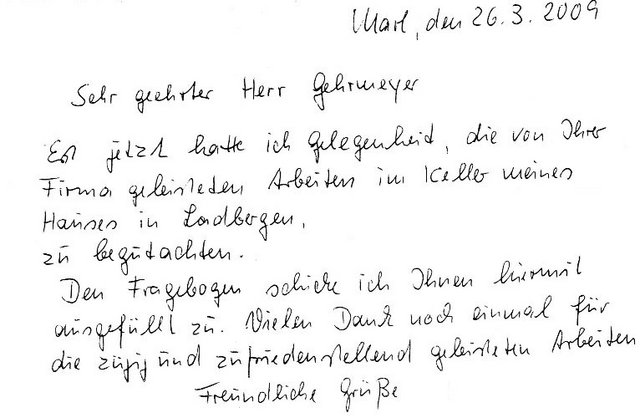 Marl, den 26.3. 2009
Sehr geehrter Herr Gehrmeyer
Erst jetzt hatte ich Gelegenheit, die von Ihrer
Firma geleisteten Arbeiten im Keller meines
Hauses in Ladbergen,
zu begutachten.
Den Fragebogen schicke ich Ihnen hiermit
ausgefüllt zu. Vielen Dank noch einmal für
die zügig und zufriedenstellend geleisteten Arbeiten
Freundliche Grüße